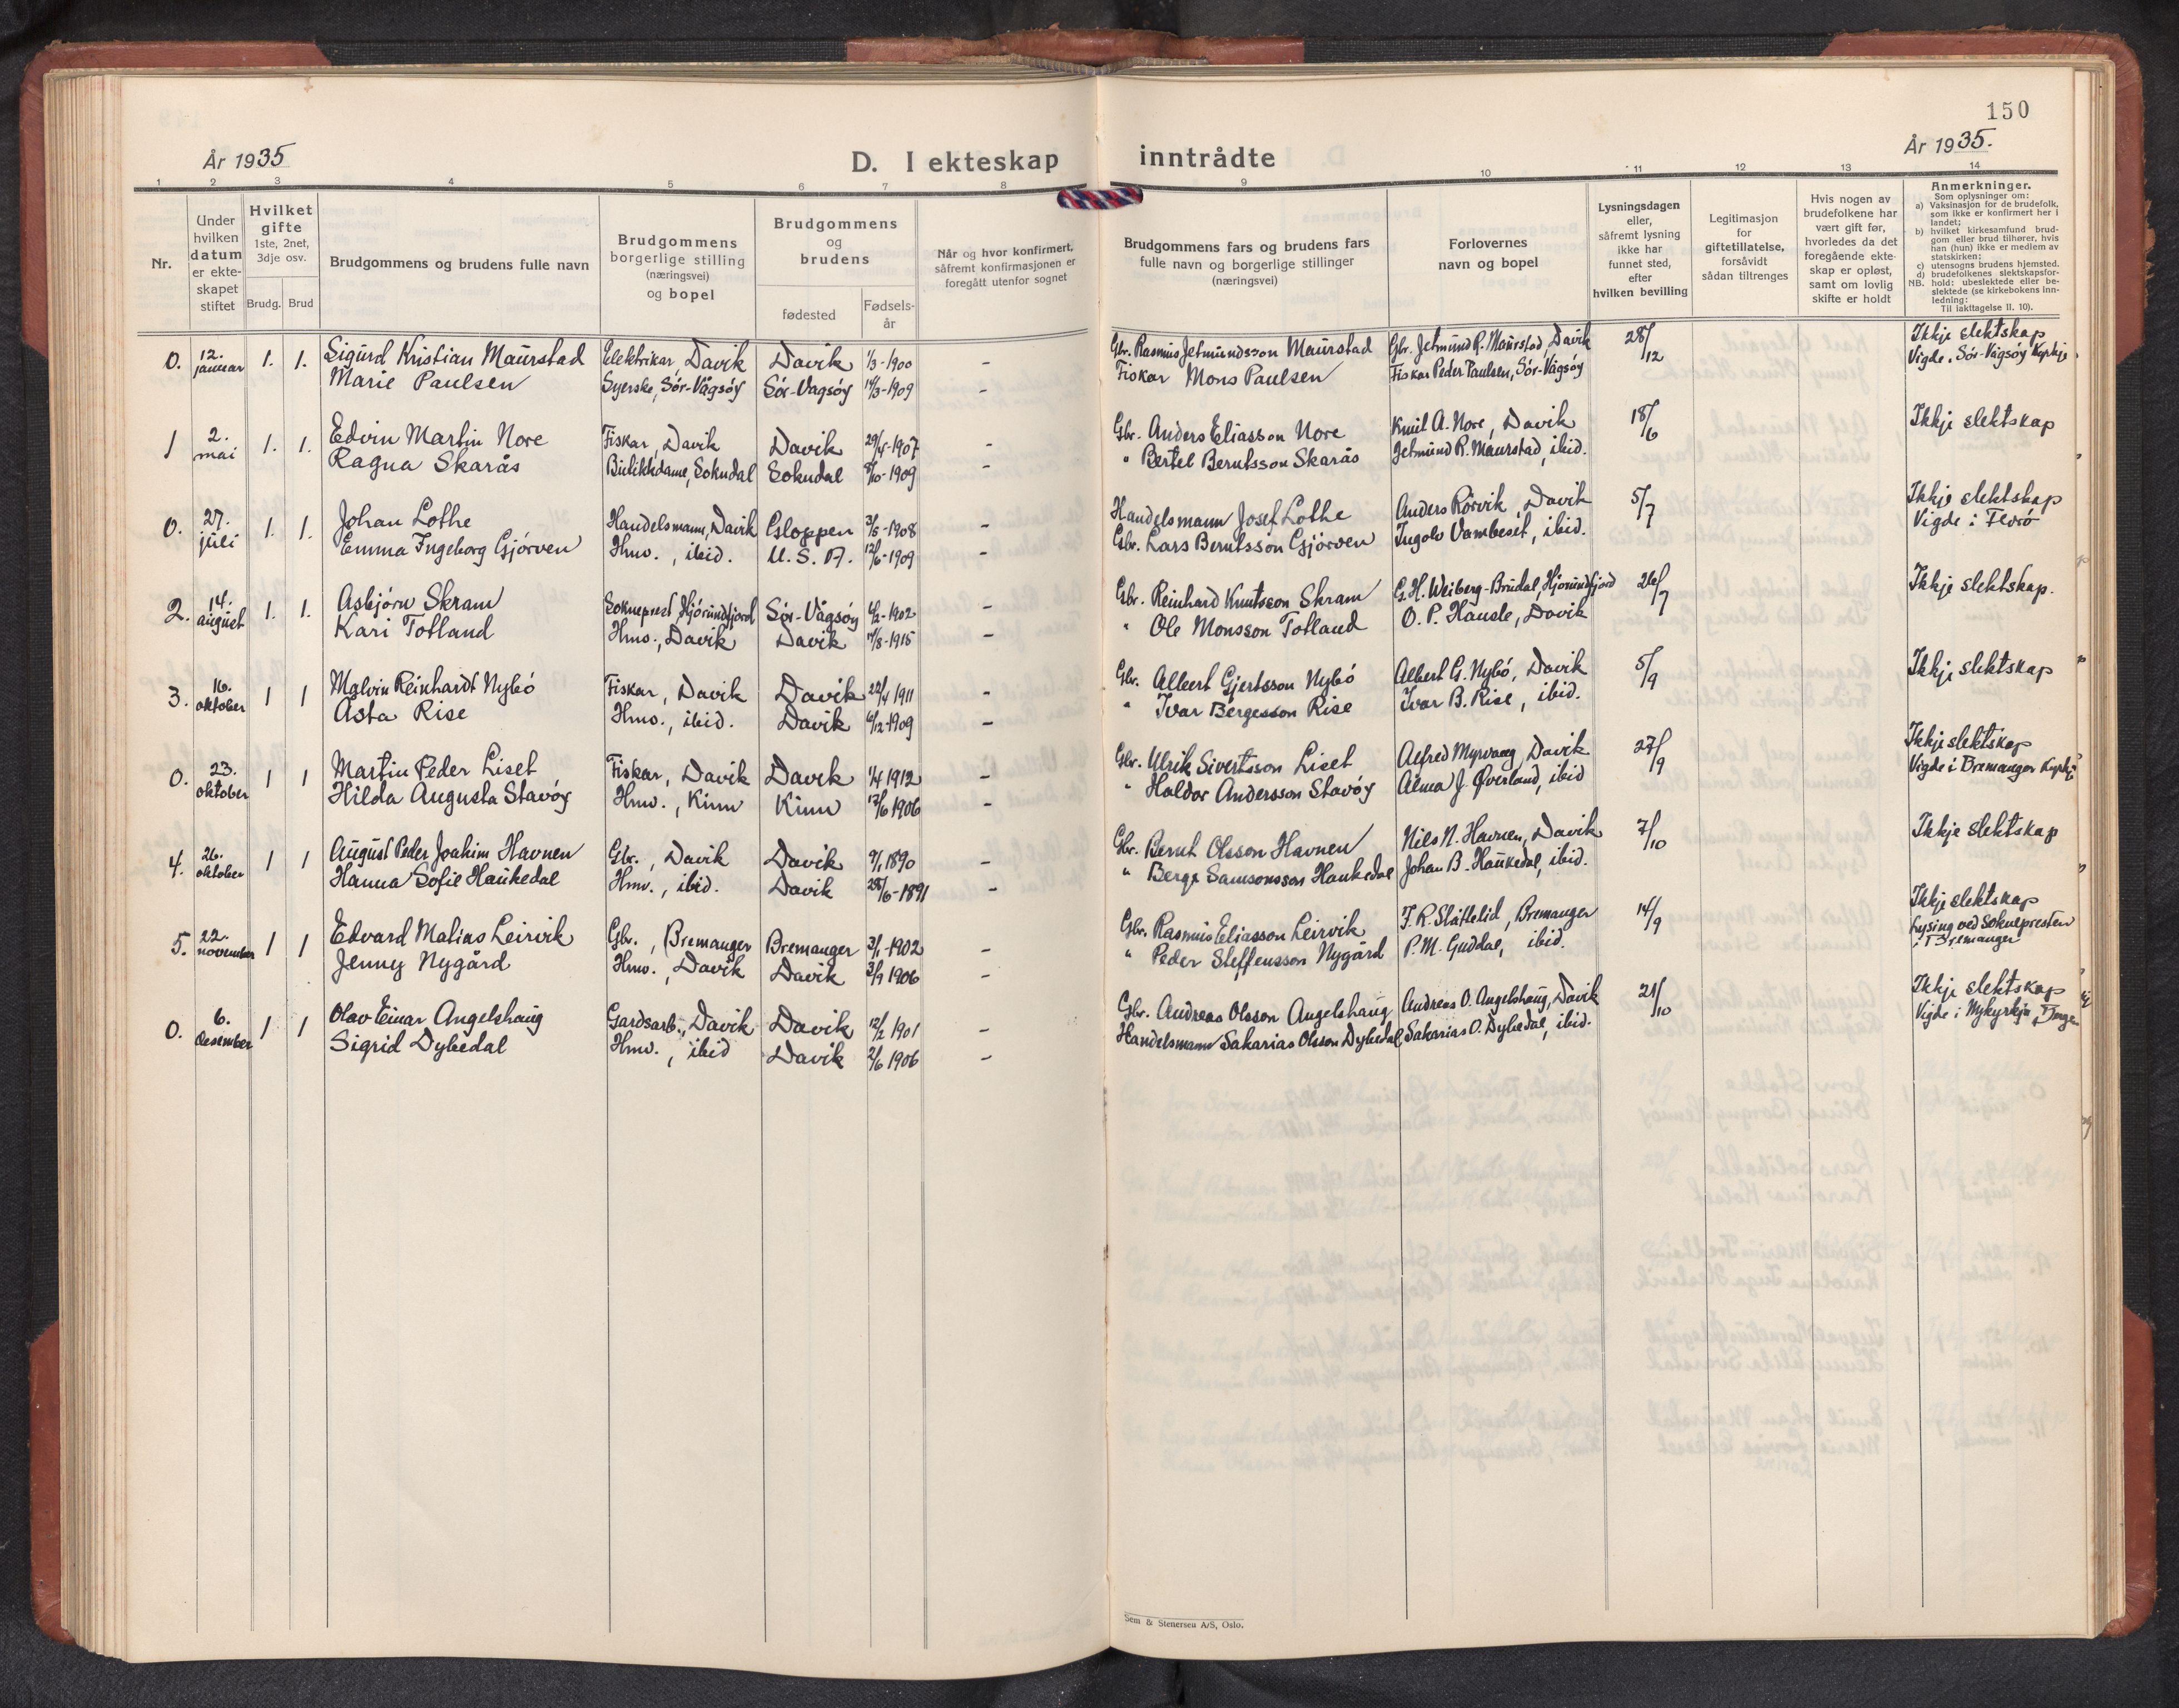 150
År 1935
D. I ekteskap inntrådte
År 1935.
1 2 3 4 5 6 7 8 9 10 11 12 13 14
Nr.
Under hvilken datum er ekteskapet stiftet
Hvilket gifte 1ste, 2net, 3dje osv.
Brudg. Brud
Brudgommens og brudens fulle navn
Brudgommens borgerlige stilling (næringsvei) og bopel
Brudgommens og brudens
fødested
Fødselsår
Når og hvor konfirmert, såfremt konfirmasjonen er foregått utenfor sognet
Brudgommens fars og brudens fars fulle navn og borgerlige stillinger (næringsvei)
Forlovernes navn og bopel
Lysningsdagen eller, såfremt lysning ikke har funnet sted, efter hvilken bevilling
Legitimasjon for giftetillatelse, forsåvidt sådan tiltrenges
Hvis nogen av brudefolkene har vært gift før, hvorledes da det foregående ekteskap er opløst, samt om lovlig skifte er holdt
Anmerkninger.
Som oplysninger om:
a) Vaksinasjon for de brudefolk, som ikke er konfirmert her i landet;
b) hvilket kirkesamfund brudgom eller brud tilhører, hvis han (hun) ikke er medlem av statskirken;
c) utensogns brudens hjemsted.
d) brudefolkenes slektskapsforhold: ubeslektede eller beslektede (se kirkebokens innledning:
NB. Til iakttagelse II. 10).
0. 12. januar 1. 1. Sigurd Kristian Maurstad Elektrikar, Davik Davik 1/3-1900 - Gbr. Rasmus Jetmundsson Maurstad Gbr. Jetmund R. Maurstad Davik 28/12 Ikkje slektskap
Marie Paulsen Syerske, Sør-Vågsøy Sør-Vågsøy 14/3-1909 - Fiskar Mons Paulsen Fiskar Peder Paulsen, Sør-Vågsøy Vigde i Sør-Vågsøy Kyrkje
1 2. mai 1. 1. Edvin Martin Nore Fiskar, Davik Davik 29/4-1907 - Gbr. Anders Eliasson Nore Knut A. Nore, Davik 18/6 Ikkje slektskap
Ragna Skarås Butikkdame, Sokndal Sokndal 8/10-1909 - " Bertel Berntsson Skarås Jetmund R. Maurstad, ibid.
0. 27. juli 1. 1. Johan Lothe Handelsmann, Davik Gloppen 3/6-1908 - Handelsmann Josef Lothe Anders Rørvik, Davik 5/7 Ikkje slektskap
Emma Ingeborg Gjørven Hmv., ibid. U. S. A. 12/6-1909 - Gbr. Lars Berntsson Gjørven Ingolv Vambeset, ibid. Vigde i Florø
2. 14. august 1. 1. Asbjørn Skram Sokneprest, Hjørundfjord Sør-Vågsøy 4/2-1902 - Gbr. Reinhard Knutsson Skram G. H. Weiberg-Brudal, Hjørundfjord 26/7 Ikkje slektskap.
Kari Totland Hmv., Davik Davik 14/8-1915 - " Ole Monsson Totland O. P. Hausle, Davik
3. 16. oktober 1 1 Malvin Reinhardt Nybø Fiskar, Davik Davik 22/4 1911 - Gbr. Albert Gjertsson Nybø Albert G. Nybø, Davik 5/9 Ikkje slektskap
Asta Rise Hmv., ibid. Davik 6/12-1909 - " Ivar Bergesson Rise Ivar B. Rise, ibid.
0. 23. oktober 1 1 Martin Peder Liset Fiskar, Davik Davik 1/4 1912 - Gbr. Ulrik Sivertsson Liset Alfred Myrvang, Davik 27/9 Ikkje slektskap
Hilda Augusta Stavøy Hmv., Kinn Kinn 17/6 1906 - " Haldor Andersson Stavøy Alma J. Øverland, ibid Vigde i Bremanger Kyrkje
4. 26. oktober 1 1 August Peder Joakim Havnen Gbr., Davik Davik 9/1 1890 - Gbr. Bernt Olsson Havnen Nils N. Havnen, Davik 7/10 Ikkje slektskap
Hanna Sofie Haukedal Hmv., ibid. Davik 28/6-1891 - " Berge Samsonsson Haukedal Johan B. Haukedal, ibid.
5. 22. november 1 1 Edvard Matias Leirvik Gbr., Bremanger Bremanger 3/1-1902 - Gbr. Rasmus Eliasson Leirvik F. R. Slåttelid, Bremanger 14/9 Ikkje slektskap
Jenny Nygård Hmv., Davik Davik 3/9 1906 - " Peder Steffensson Nygård P. M. Guddal, ibid. Lysing ved Soknepresten i Bremanger
0. 6. desember 1 1 Olav Einar Angelshaug Gardsarb., Davik Davik 12/2 1901 - Gbr. Andreas Olsson Angelshaug Andreas O. Angelshaug, Davik 21/10 Ikkje slektskap
Sigrid Dybedal Hmv., ibid Davik 2/6 1906 - Handelsmann Sakarias Olsson Dybedal Sakarias O. Dybedal, ibid. Vigde i Nykyrkja
Sem & Stenersen A/S, Oslo.